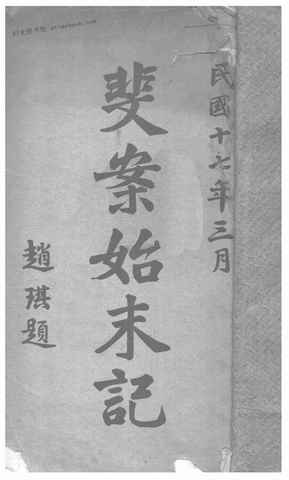 民國十七年三月
斐案始末記
趙琪題